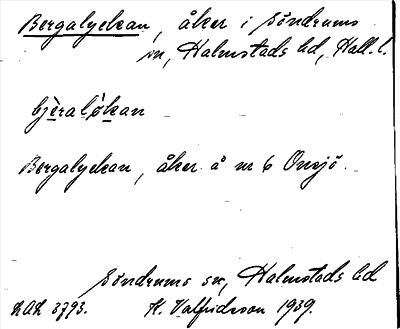 Bergalyckan, åker i Söndrums
sn, Halmstads hd, Hall. l.
bjèralỳkan
Bergalyckan, åker å nr 6 Onsjö.
Söndrums sn, Halmstads hd
LAL 3793. H. Valfridsson 1939.